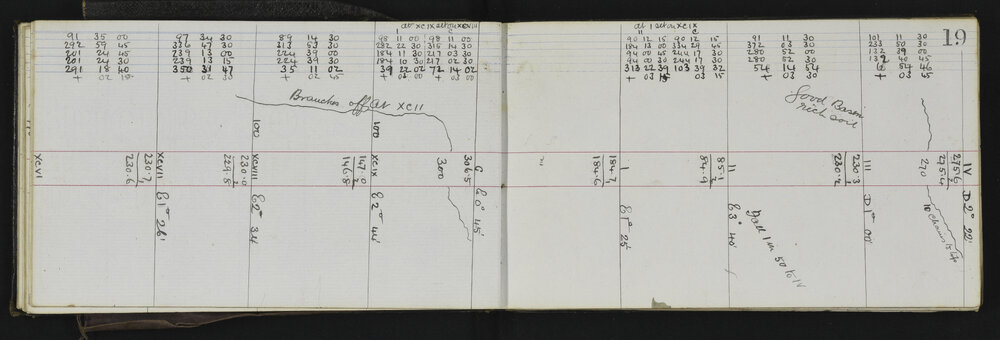 at XCIX set on XCVIII
at I set on XCIX
I C
II C
19
91 35 00
292 59 45
201 24 45
201 24 30
291 18 40
+ 02 15
97 34 30
336 47 30
239 13 00
239 13 15
350 31 47
+ 00 30
89 14 30
313 53 30
224 39 00
224 39 30
35 11 02
+ 02 45
98 11 00 98 11 00
282 22 30 315 14 30
184 11 30 217 03 30
184 10 30 217 02 30
39 22 02 72 14 02
+ 03 00 + 03 00
90 12 15 90 12 15
184 13 00 334 29 45
94 00 45 244 17 30
94 00 30 244 17 30
313 22 39 103 39 32
+ 03 15 03 15
91 11 30
372 03 30
280 52 00
280 52 30
54 14 54
+ 03 30
101 11 30
233 50 30
132 39 00
132 40 45
G 54 46
+ 03 45
Branches off at XCII
Good Basin
rich soil
XCVI
230.7
1
230.6
XCVII
E 1° 26'
230.0
2
229.8
XCVIII
100
E 2° 34'
147.0
2
146.8
XCIX
100
E 2° 44'
300
306.5
C
E 0° 45'
184.7
1
184.6
I
E 1° 25'
85.1
2
84.9
II
E 3° 40'
Gall 1 in 50 to IV
230.3
1
230.2
III
D 1° 00'
270
10 chains to
275.6
2
275.4
IV
D 2° 22'